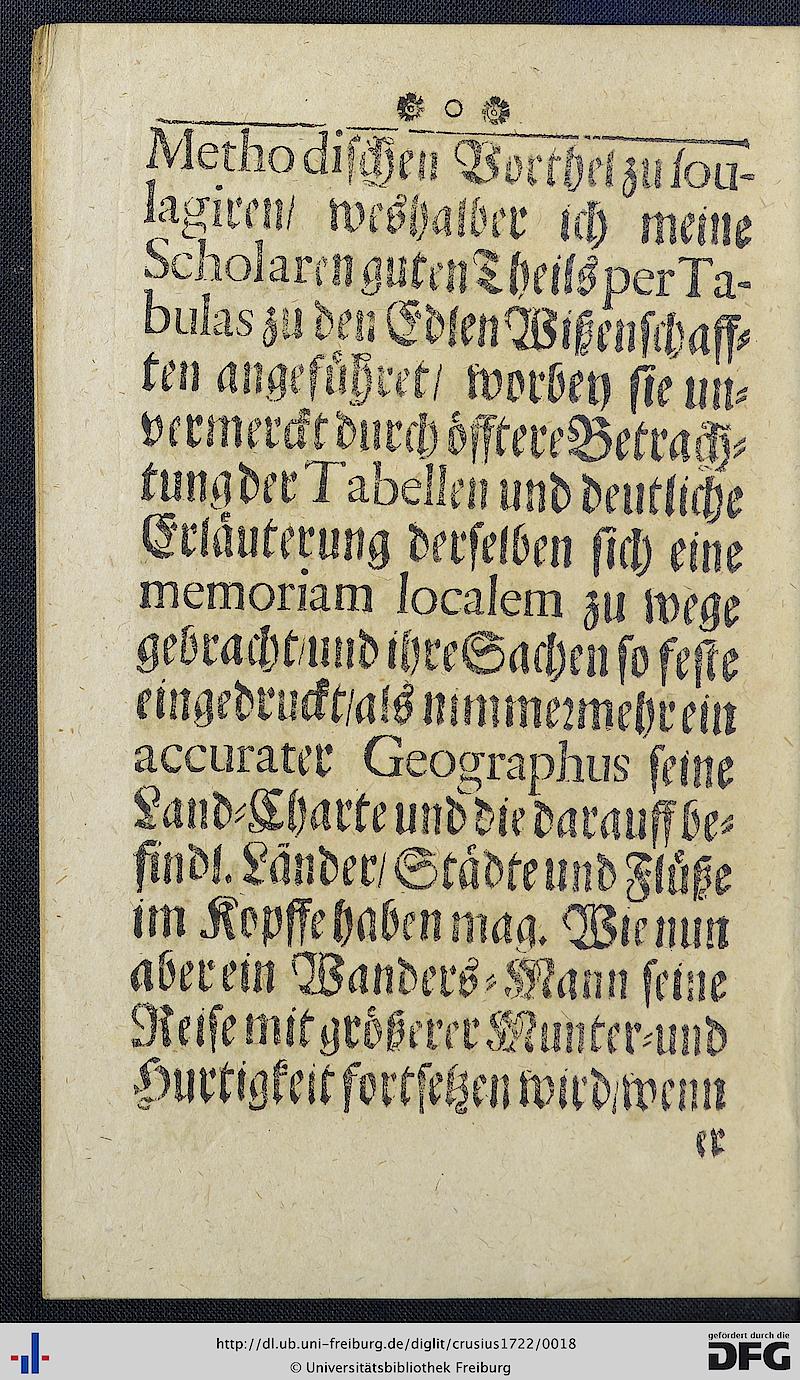 ❁ o ❁
Methodischen Vorthel zu sou-
lagiren/ weshalber ich meine
Scholaren guten Theils per Ta-
bulas zu den Edlen Wißenschaff-
ten angeführet/ worbey sie un-
vermerckt durch öfftere Betrach-
tung der Tabellen und deutliche
Erläuterung derselben sich eine
memoriam localem zu wege
gebracht/ und ihre Sachen so feste
eingedruckt/ als nimmermehr ein
accurater Geographus seine
Land-Charte und die darauff be-
findl. Länder/ Städte und Flüße
im Kopffe haben mag. Wie nun
aber ein Wanders-Mann seine
Reise mit größerer Munter- und
Hurtigkeit fortsetzen wird/ wenn
er
http://dl.ub.uni-freiburg.de/diglit/crusius1722/0018
© Universitätsbibliothek Freiburg
gefördert durch die
DFG